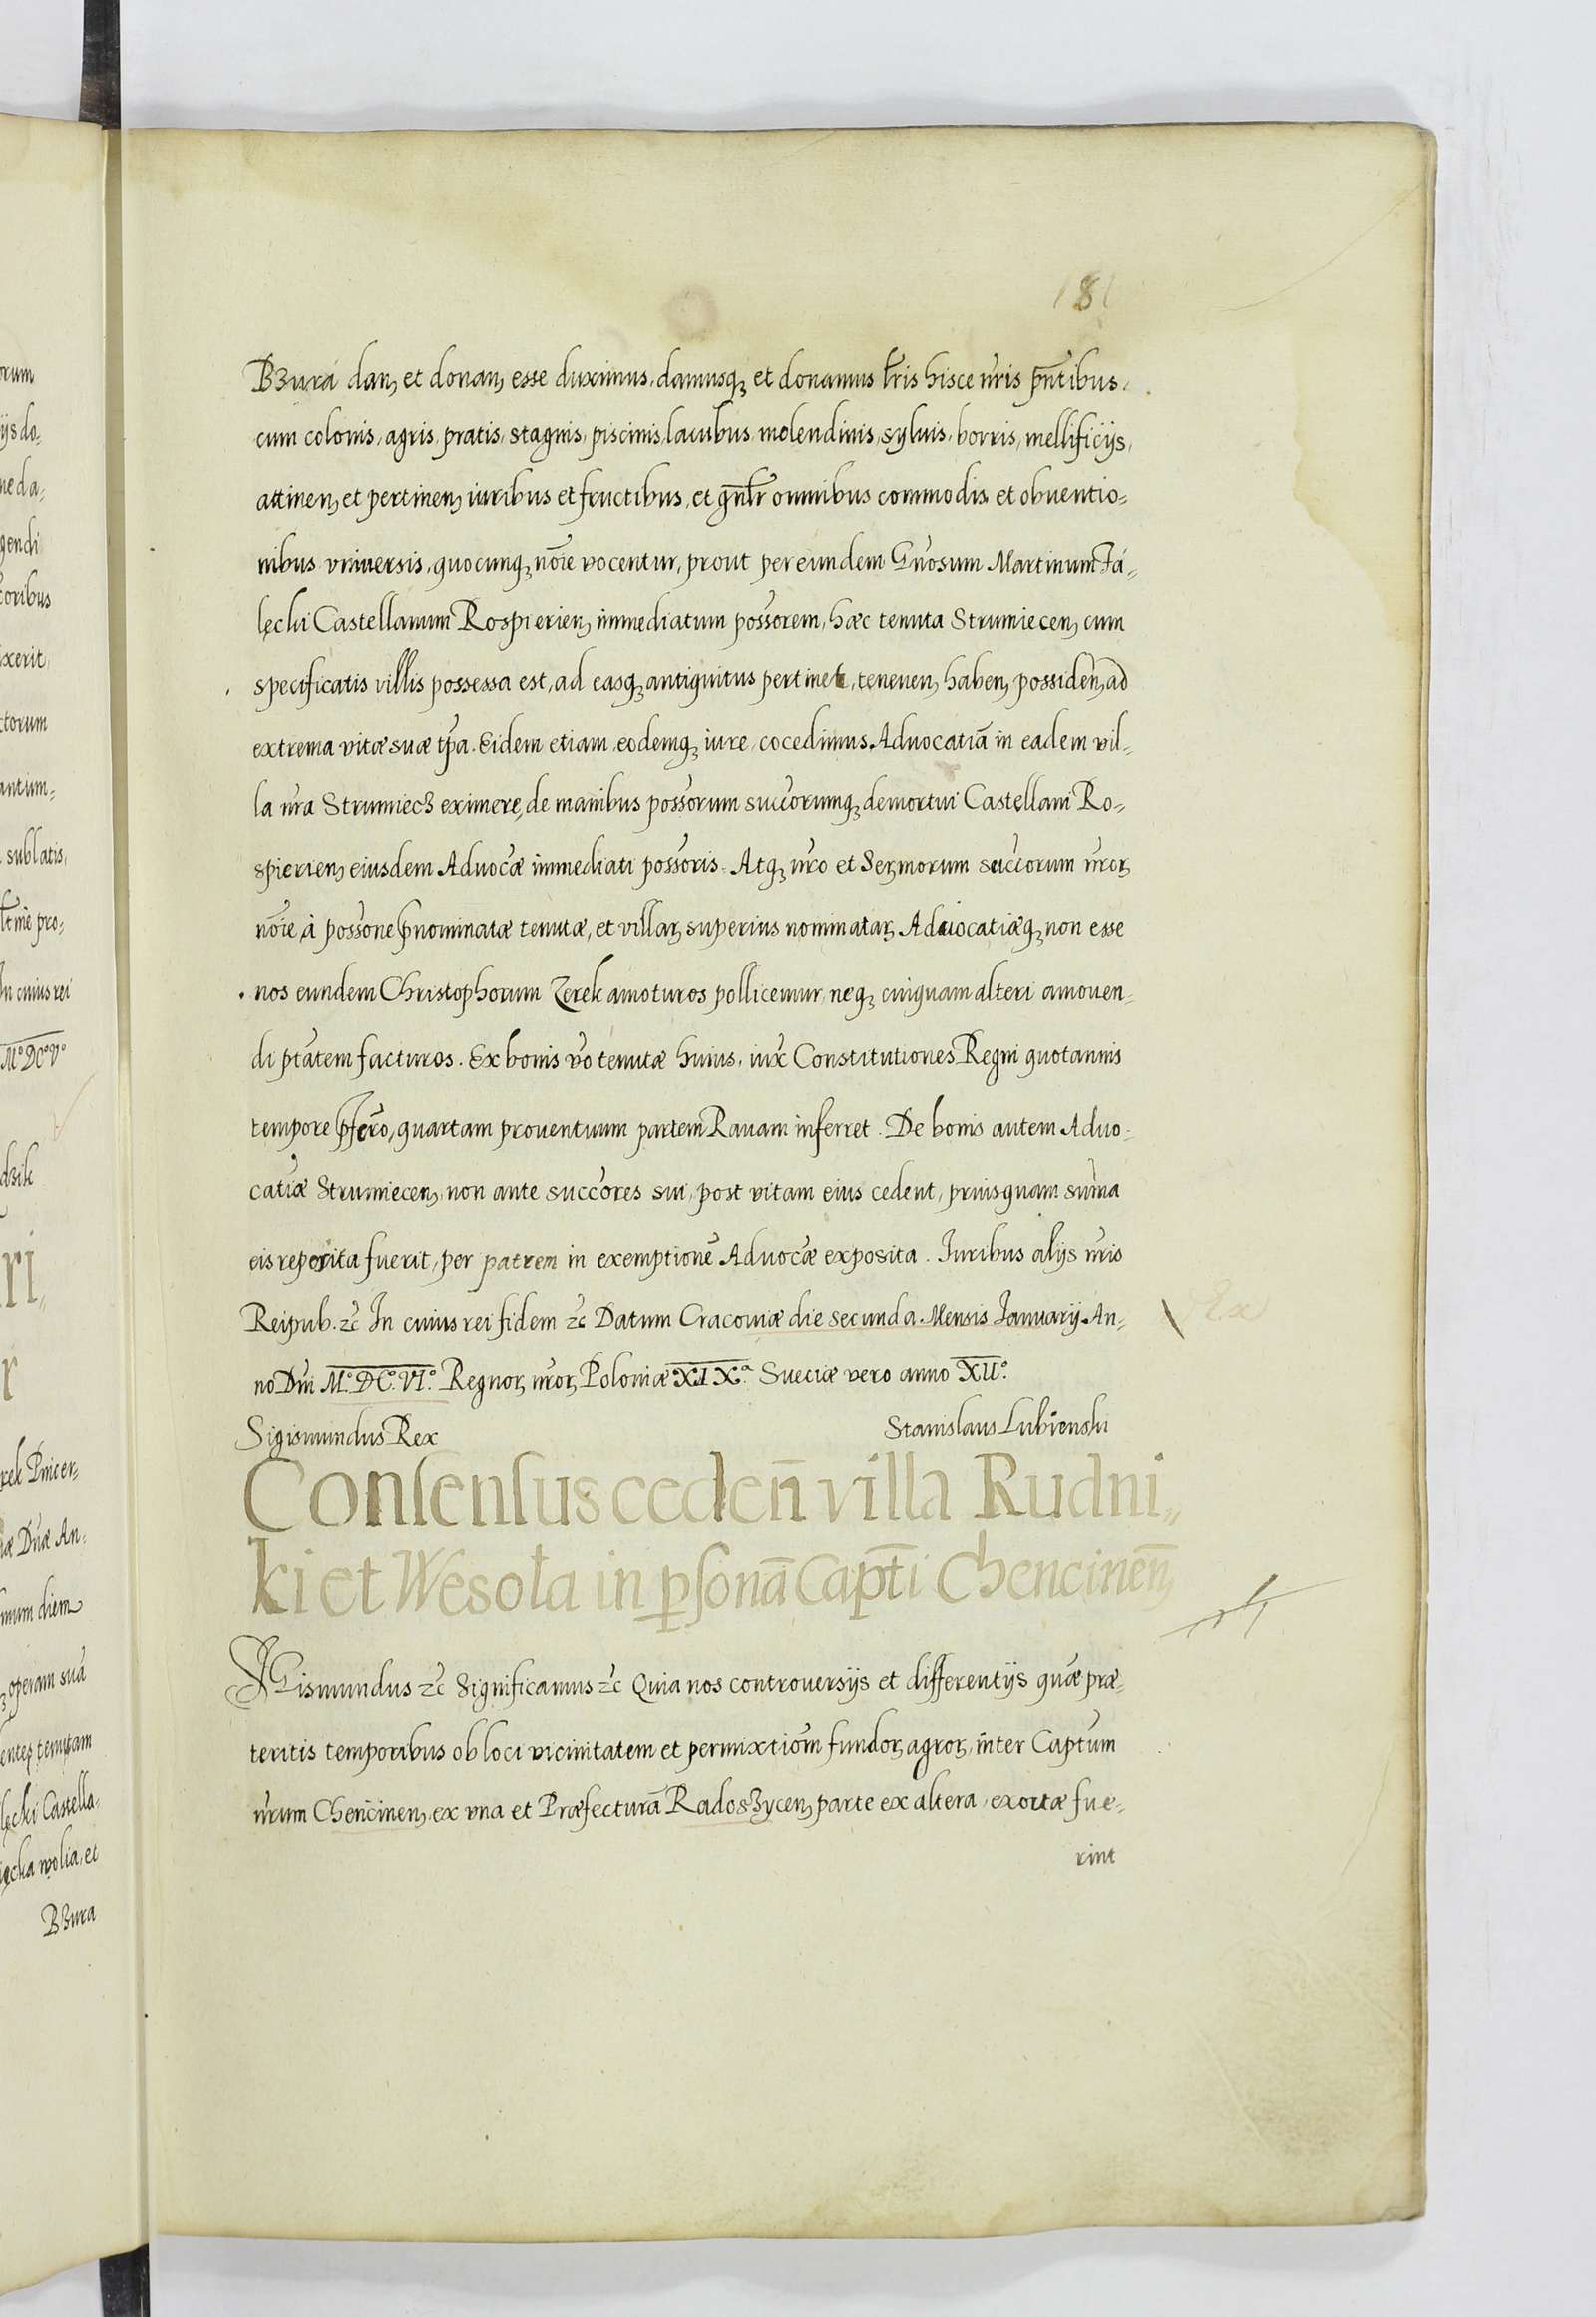 181
Bzura dan, et donan, esse duximus, damusq, et donamus lris hisce nris pntibus,
cum colonis, agris, pratis, stagnis, piscinis, lacubus, molendinis, syluis, borris, mellificijs,
attinen, et pertinen, iuribus et fructibus, et gnlr omnibus commodis et obuentio-
nibus vniuersis, quocunq, noie vocentur, prout per eundem Gnosum Martinum Ja-
lęcki Castellanum Rospierien, immediatum possorem, hæc tenuta Strumiecen, cum
specificatis villis possessa est, ad easq, antiquitus pertinet, tenenen, haben, possiden, ad
extrema vitæ suæ tpa. Eidem etiam eodemq, iure, cocedimus Aduocatiã in eadem vil-
la nra Strumiech eximere, de manibus possorum succorumq, demortui Castellani Ro-
spierien, eiusdem Aduocæ immediati possoris. Atq, nro et Sermorum succorum nror,
noie, à possone pnominatæ tenutæ, et villar, superius nominatar, Aduocatiæq, non esse
nos eundem Christophorum Zerek amoturos pollicemur, neq, cuiquam alteri amouen-
di ptatem facturos. Ex bonis vo tenutæ huius, iux Constitutiones Regni quotannis
tempore psero, quartam prouentuum partem Rauam inferret. De bonis autem Aduo-
catiæ Strumiecen, non ante succores sui, post vitam eius cedent, priusquam suma
eis reposita fuerit, per patrem in exemptionẽ Aduocæ exposita. Iuribus alijs nris
Reipub. zc In cuius rei fidem zc Datum Cracouiæ die secunda Mensis Ianuarij An-
Ex
no Dni M.° DC.° VI.° Regnor, nror, Poloniæ XIX.ª Sueciæ vero anno XII.°
Sigismundus Rex Stanislaus Lubienski
Consensus ceden̄ villa Rudni,,
ki et Wesoła in psonā Capti Chencinen̄,
SIGismundus zc Significamus zc Quia nos controuersijs et differentijs quæ præ-
teritis temporibus ob loci vicinitatem et permixtiom fundor, agror, inter Captum
nrum Chencinen, ex vna et Præfecturã Radoszycen, parte ex altera, exortæ fue-
rint